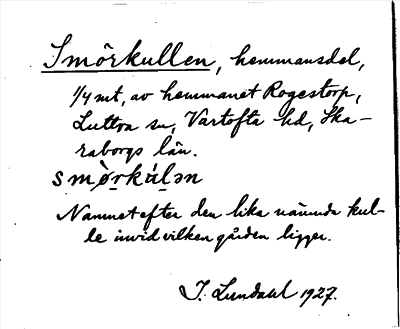 Smörkullen, hemmansdel,
1/4 mt, av hemmanet Rogestorp,
Luttra sn, Vartofta hd, Ska-
raborgs län.
smö̀rkál̥ən
Namnet efter den lika nämnda kul-
le invid vilken gården ligger.
J. Lundahl 1927.